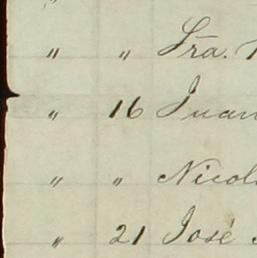 " " Sra.
" 16 Juan
" " Nicol
" 21 José